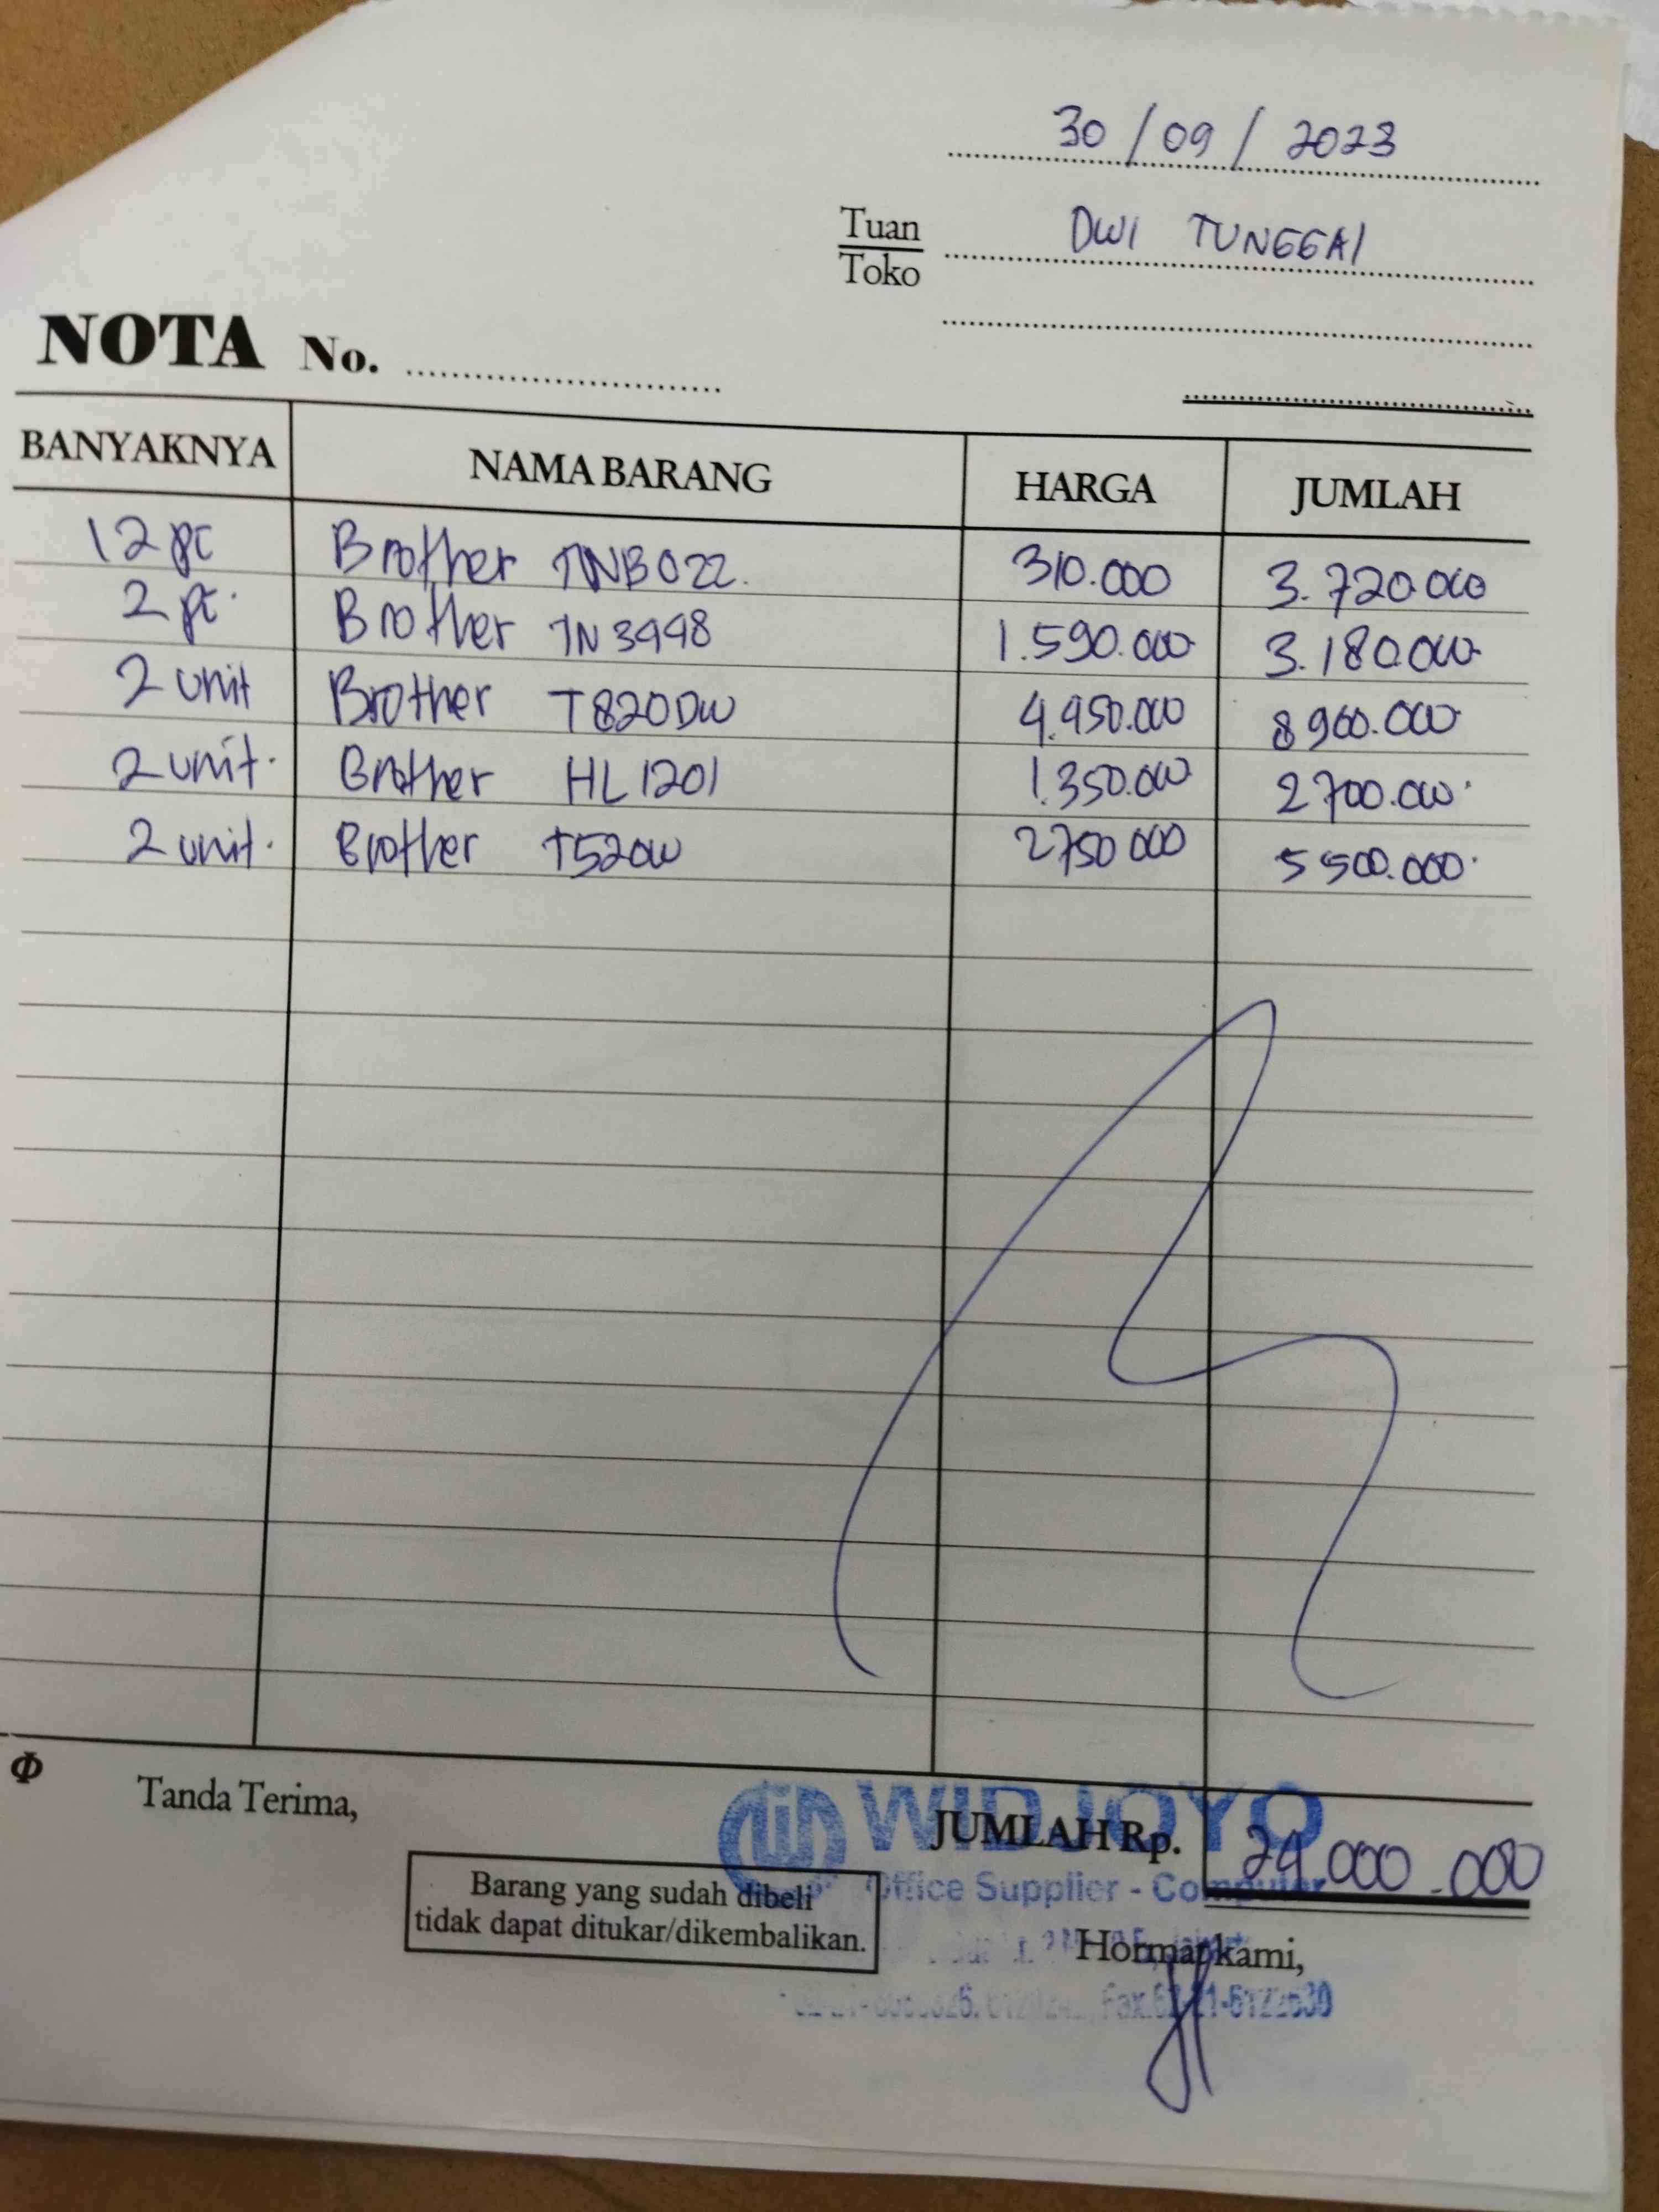 30 / 09 / 2023
Tuan
Toko
DWI TUNGGAl
NOTA No.
BANYAKNYA NAMA BARANG HARGA JUMLAH
12 pc Brother TNB022. 310.000 3.720.000
2 pc. Brother TN 3448 1.590.000 3.180.000
2 unit Brother T820DW 4.450.000 8960.000
2 unit. Brother HL 1201 1.350.000 2700.000
2 unit. Brother T520W 2750 000 5500.000
Φ Tanda Terima,
WIDJOYO
JUMLAH Rp. 24.000.000
Office Supplier - Computer
Barang yang sudah dibeli
tidak dapat ditukar/dikembalikan.
Hormat kami,
Fax.62-21-6122630